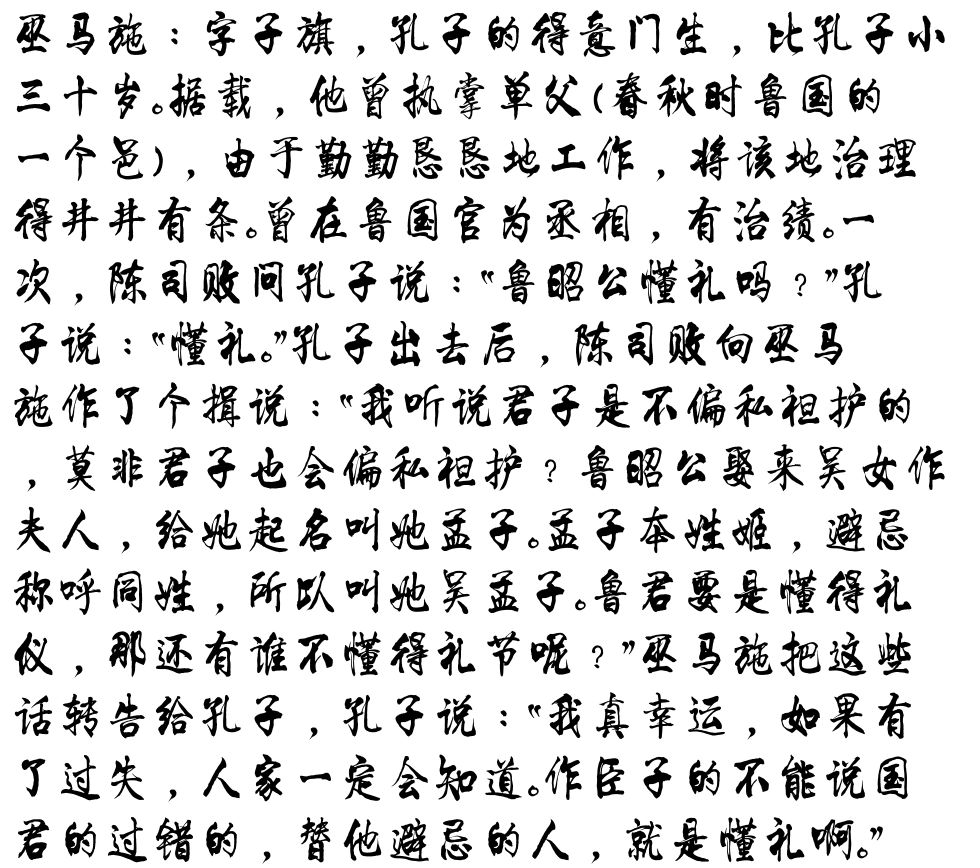 巫马施：字子旗，孔子的得意门生，比孔子小
三十岁。据载，他曾执掌单父(春秋时鲁国的
一个邑)，由于勤勤恳恳地工作，将该地治理
得井井有条。曾在鲁国官为丞相，有治绩。一
次，陈司败问孔子说：“鲁昭公懂礼吗？”孔
子说：“懂礼。”孔子出去后，陈司败向巫马
施作了个揖说：“我听说君子是不偏私袒护的
，莫非君子也会偏私袒护？鲁昭公娶来吴女作
夫人，给她起名叫她孟子。孟子本姓姬，避忌
称呼同姓，所以叫她吴孟子。鲁君要是懂得礼
仪，那还有谁不懂得礼节呢？”巫马施把这些
话转告给孔子，孔子说：“我真幸运，如果有
了过失，人家一定会知道。作臣子的不能说国
君的过错的，替他避忌的人，就是懂礼啊。”